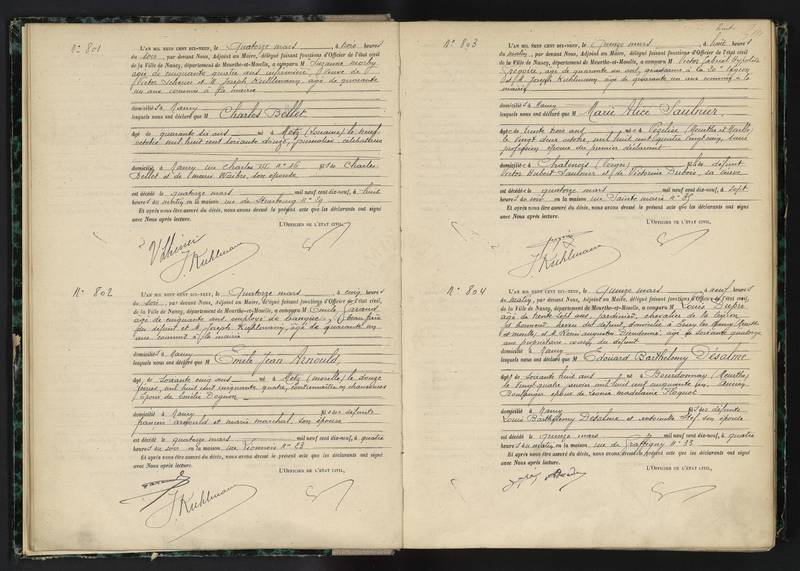 N° 801
L'AN MIL NEUF CENT DIX-NEUF, le quatorze mars, à trois heures
du soir, par devant Nous, Adjoint au Maire, délégué faisant fonctions d'Officier de l'état civil,
de la Ville de Nancy, département de Meurthe-et-Moselle, a comparu M Suzanne
âgée de cinquante quatre ans infirmière, veuve de
Victor et M Joseph Kuhlmann, âgé de quarante
un ans commis à la mairie
domiciliés à Nancy
lesquels nous ont déclaré que M Charles Bellot
âgé de quarante six ans né à Metz (Lorraine) le neuf
octobre mil huit cent soixante douze, journalier, célibataire
domicilié à Nancy rue Charles III n° 26 fils de Charles
Bellot et de Marie son épouse
est décédé le quatorze mars mil neuf cent dix-neuf, à huit
heures du matin en la maison rue de Strasbourg n° 29
Et après nous être assuré du décès, nous avons dressé le présent acte que les déclarants ont signé
avec Nous après lecture.
L'OFFICIER DE L'ÉTAT CIVIL,
J. Kuhlmann
N° 802
L'AN MIL NEUF CENT DIX-NEUF, le quatorze mars, à cinq heures
du soir, par devant Nous, Adjoint au Maire, délégué faisant fonctions d'Officier de l'état civil,
de la Ville de Nancy, département de Meurthe-et-Moselle, a comparu M Emile
âgé de cinquante ans employé de banque, beau frère
du défunt et M Joseph Kuhlmann, âgé de quarante un
ans commis à la mairie
domiciliés à Nancy
lesquels nous ont déclaré que M Emile Jean Arnould,
âgé de soixante cinq ans né à Metz (Moselle) le douze
février mil huit cent cinquante quatre, contremaître en chaussures
époux de Emilie
domicilié à Nancy fils des défunts
françois Arnould et marie marchal, son épouse
est décédé le quatorze mars mil neuf cent dix-neuf, à quatre
heures du soir en la maison rue n° 23
Et après nous être assuré du décès, nous avons dressé le présent acte que les déclarants ont signé
avec Nous après lecture.
L'OFFICIER DE L'ÉTAT CIVIL,
J. Kuhlmann
N° 803
L'AN MIL NEUF CENT DIX-NEUF, le quinze mars, à huit heures
du matin, par devant Nous, Adjoint au Maire, délégué faisant fonctions d'Officier de l'état civil,
de la Ville de Nancy, département de Meurthe-et-Moselle, a comparu M Victor Gabriel Hypolite
Grégoire, âgé de quarante un ans, gendarme à la 20e légion
et M Joseph Kuhlmann âgé de quarante un ans commis à la
mairie
domiciliés à Nancy
lesquels nous ont déclaré que M Marie Alice Saulnier,
âgée de trente trois ans née à (Meurthe et Moselle)
le vingt deux octobre mil huit cent quatre vingt cinq, sans
profession épouse du premier déclarant
domiciliée à (Vosges) fille de défunt
Victor Hubert Saulnier et de Victorine Dubois, sa veuve
est décédée le quatorze mars mil neuf cent dix-neuf, à sept
heures du soir en la maison rue Sainte marie n° 35
Et après nous être assuré du décès, nous avons dressé le présent acte que les déclarants ont signé
avec Nous après lecture.
L'OFFICIER DE L'ÉTAT CIVIL,
J. Kuhlmann
N° 804
L'AN MIL NEUF CENT DIX-NEUF, le quinze mars, à neuf heures
du matin, par devant Nous, Adjoint au Maire, délégué faisant fonctions d'Officier de l'état civil,
de la Ville de Nancy, département de Meurthe-et-Moselle, a comparu M Louis Dupré
âgé de trente sept ans, jardinier, chevalier de la Légion
d'honneur, neveu du défunt, domicilié à Essey les Nancy (Meurthe
et Moselle) et M Rémi augustin Dieudonné, âgé de soixante quatorze
ans propriétaire cousin du défunt
domicilié à Nancy
lesquels nous ont déclaré que M Edouard Barthélemy Désalme
âgé de soixante huit ans né à Bourdonnay (Meurthe)
le vingt quatre mil huit cent cinquante ancien
Boulanger époux de madelaine
domicilié à Nancy fils des défunts
Louis Barthélemy Désalme et son épouse
est décédé le quinze mars mil neuf cent dix-neuf, à quatre
heures du matin en la maison rue de Graffigny n° 33
Et après nous être assuré du décès, nous avons dressé le présent acte que les déclarants ont signé
avec Nous après lecture.
L'OFFICIER DE L'ÉTAT CIVIL,